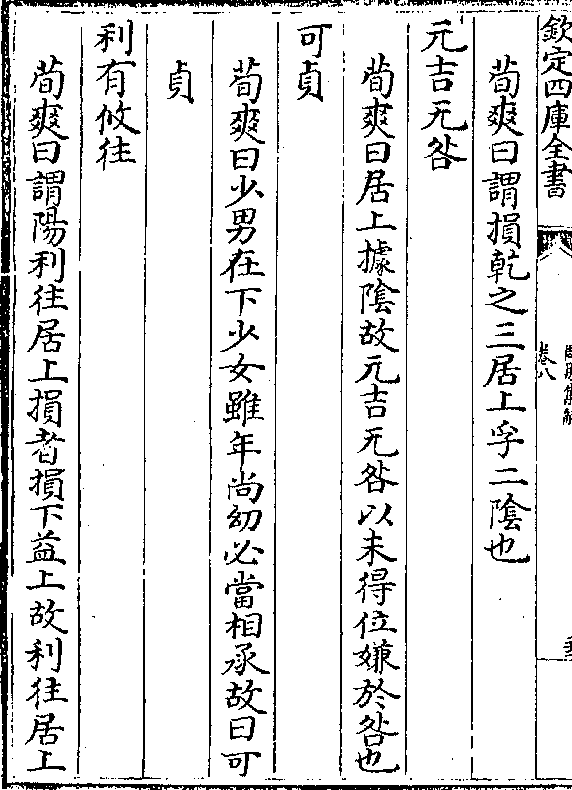 欽定四庫全書
卷八
荀爽曰謂損乾之三居上孚二陰也
元吉无咎
荀爽曰居上據陰故元吉无咎以未得位嫌於咎也
可貞
荀爽曰少男在下少女雖年尚幼必當相承故曰可
貞
利有攸往
荀爽曰謂陽利往居上損者損下益上故利往居上